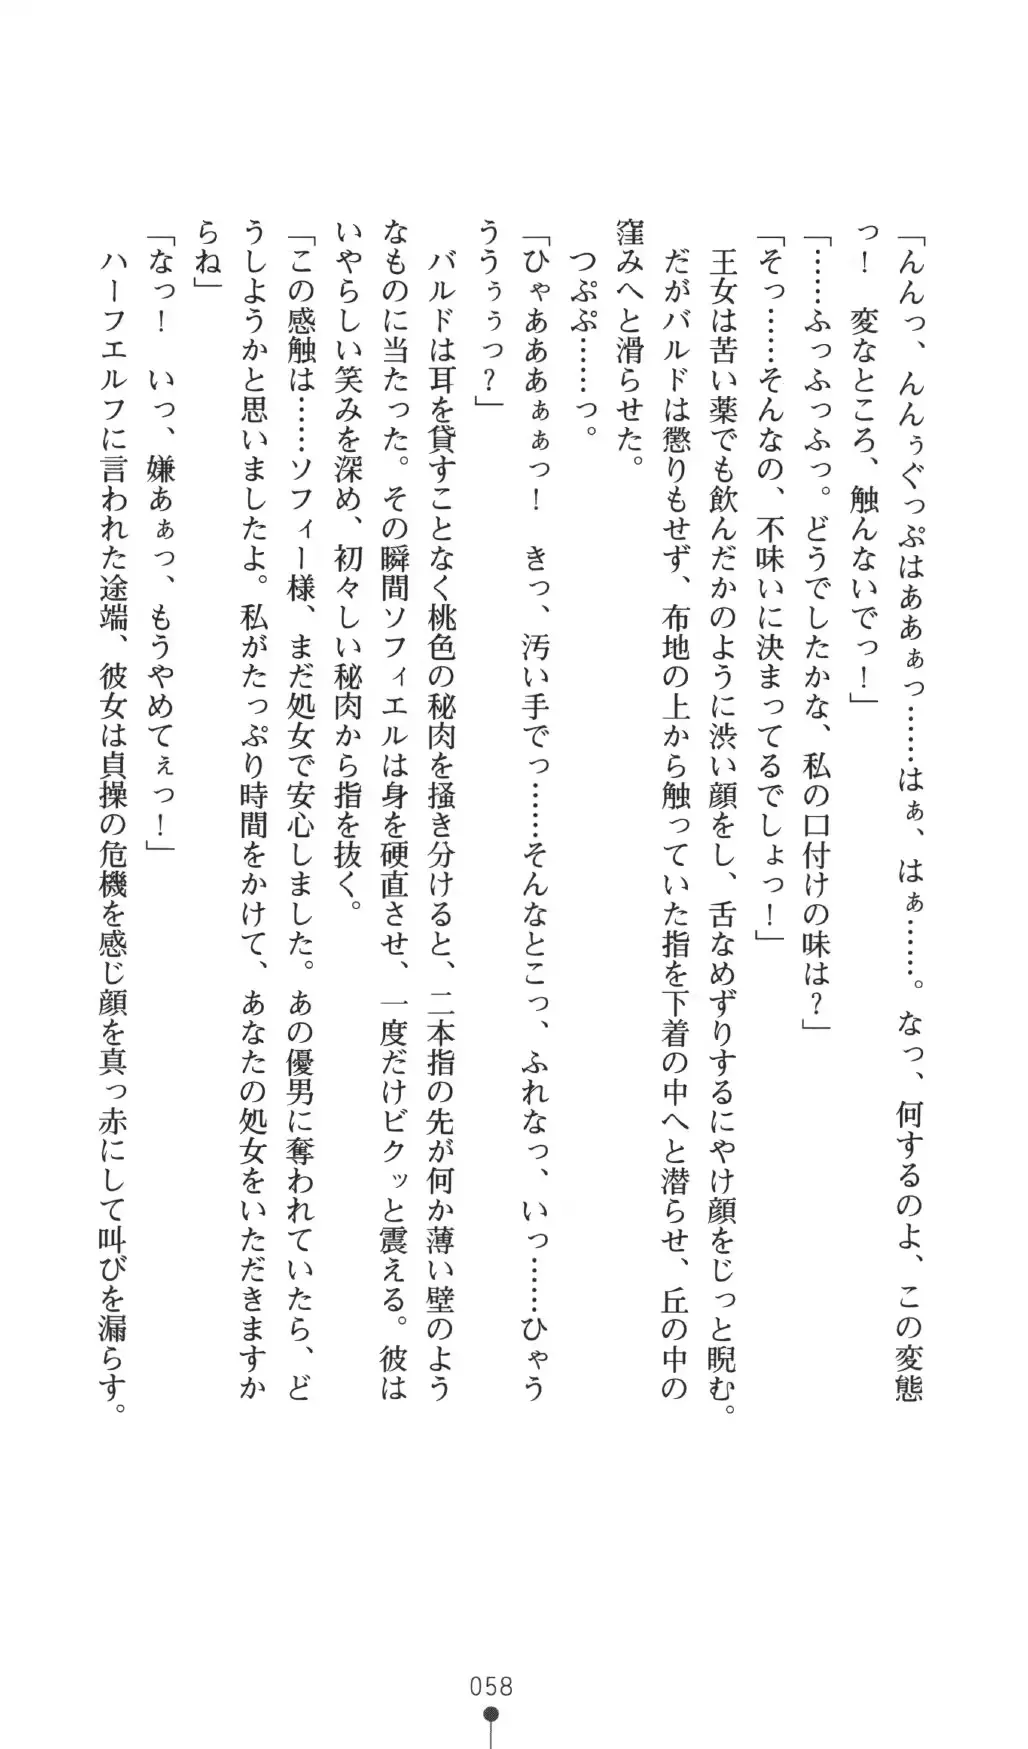 「んんっ、んんぅぐっぷはああぁっ……はぁ、はぁ……。なっ、何するのよ、この変態
っ！　変なところ、触んないでっ！」
「……ふっふっふっ。どうでしたかな、私の口付けの味は？」
「そっ……そんなの、不味いに決まってるでしょっ！」
　王女は苦い薬でも飲んだかのように渋い顔をし、舌なめずりするにやけ顔をじっと睨む。
　だがバルドは懲りもせず、布地の上から触っていた指を下着の中へと潜らせ、丘の中の
窪みへと滑らせた。
　つぷぷ……っ。
「ひゃあああぁぁっ！　きっ、汚い手でっ……そんなとこっ、ふれなっ、いっ……ひゃう
ううぅぅっ？」
　バルドは耳を貸すことなく桃色の秘肉を掻き分けると、二本指の先が何か薄い壁のよう
なものに当たった。その瞬間ソフィエルは身を硬直させ、一度だけビクッと震える。彼は
いやらしい笑みを深め、初々しい秘肉から指を抜く。
「この感触は……ソフィー様、まだ処女で安心しました。あの優男に奪われていたら、ど
うしようかと思いましたよ。私がたっぷり時間をかけて、あなたの処女をいただきますか
らね」
「なっ！　いっ、嫌あぁっ、もうやめてぇっ！」
　ハーフエルフに言われた途端、彼女は貞操の危機を感じ顔を真っ赤にして叫びを漏らす。
058